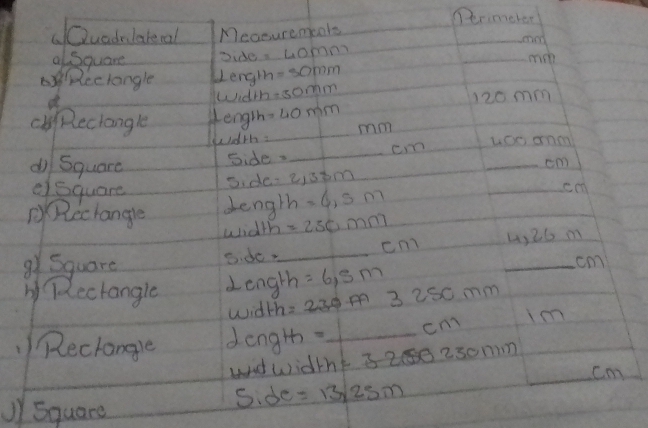 Quadrilateral Measurements Perimeter
a) Square Side = 40mm ____ mm
b) Rectangle Length = 50mm ____ mm
Width = 30mm
c) Rectangle Length = 40mm 120 mm
Width = ____ mm
d) Square Side = ____ cm 400 mm
e) Square Side = 2,35m ____ cm
f) Rectangle Length = 6,5 m ____ cm
Width = 250 mm
g) Square Side = ____ cm 4,26 m
h) Rectangle Length = 6,5m ____ cm
Width = 3 250 mm
i) Rectangle Length = ____ cm 1m
width = 250mm
J) Square Side = 13,25m ____ cm